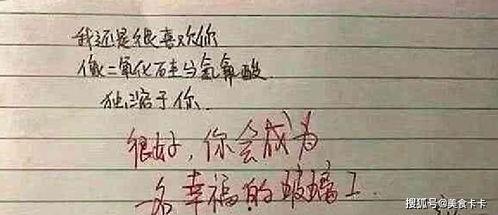 我还是很喜欢你
像二氧化硅与氢氟酸
独溶于你
很好，你会成为
一名幸福的玻璃工
搜狐号@美食卡卡